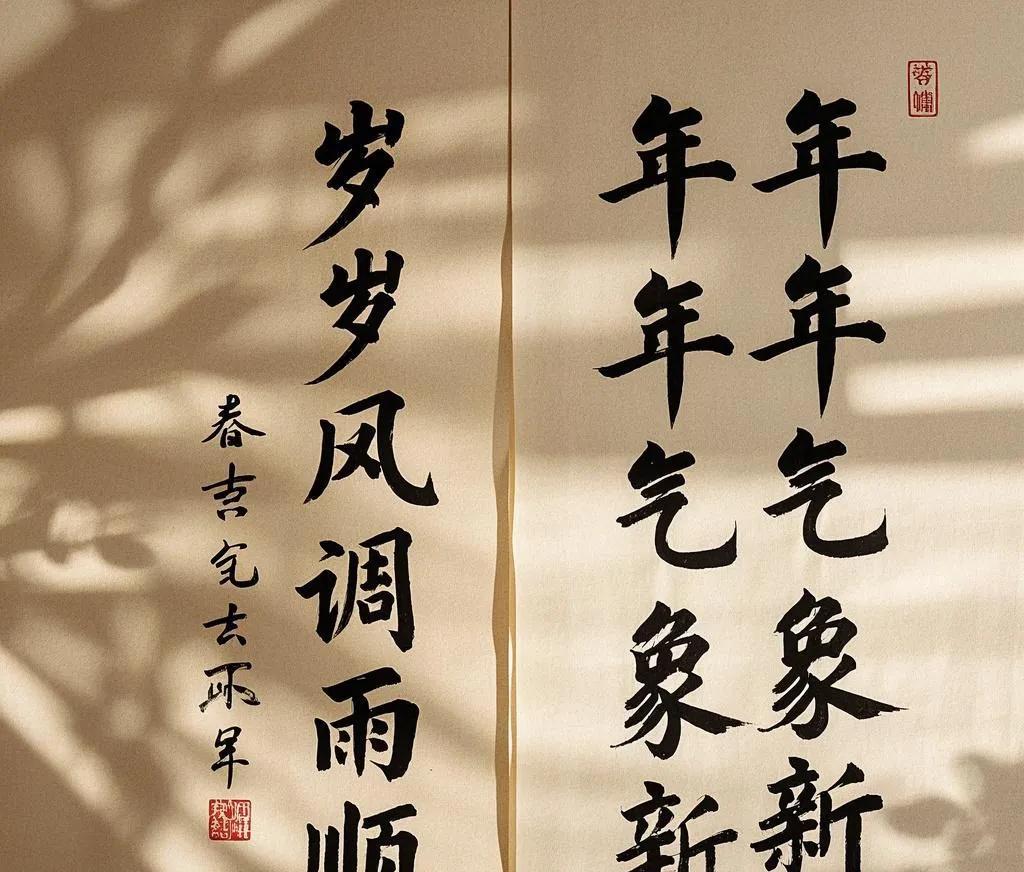 年年气象新
年年气象新
岁岁风调雨顺
春吉
去